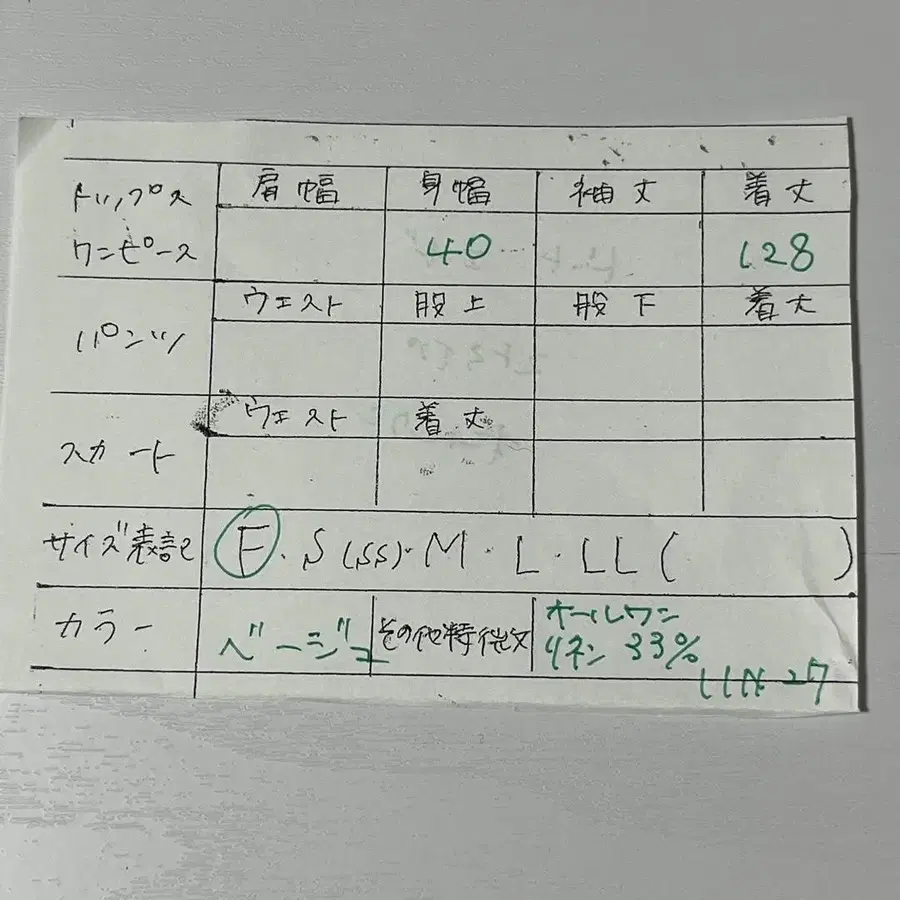 トップス 肩幅 身幅 袖丈 着丈
ワンピース 40 128
パンツ ウエスト 股上 股下 着丈
スカート ウエスト 着丈
サイズ表記 F・S(SS)・M・L・LL( )
カラー ベージュ その他特徴 オールワン
リネン 33%
27